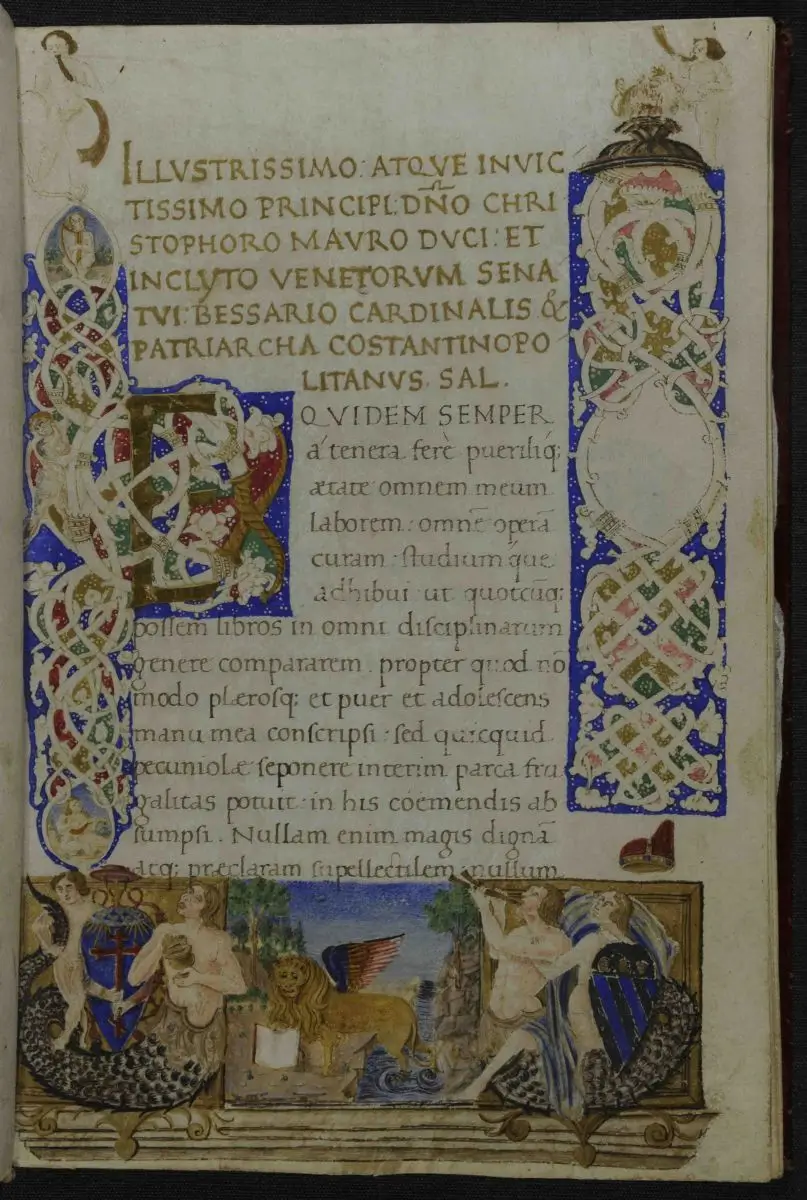 ILLVSTRISSIMO: ATQVE INVIC
TISSIMO PRINCIPI: DÑO CHRI
STOPHORO MAVRO DVCI: ET
INCLYTO VENETORVM SENA
TVI: BESSARIO CARDINALIS &
PATRIARCHA COSTANTINOPO
LITANVS. SAL.
EQVIDEM SEMPER
á tenera ferè pueriliq;
ætate omnem meum
laborem: omnē operā
curam: studiumque
adhibui ut quotcūq;
possem libros in omni disciplinarum
genere compararem. propter quod nō
modo plærosq; et puer et adolescens
manu mea conscripsi: sed quicquid
pecuniolæ seponere interim parca fru
galitas potuit: in his coemendis ab
sumpsi. Nullam enim magis dignā
atq; præclaram supellectilem: nullum